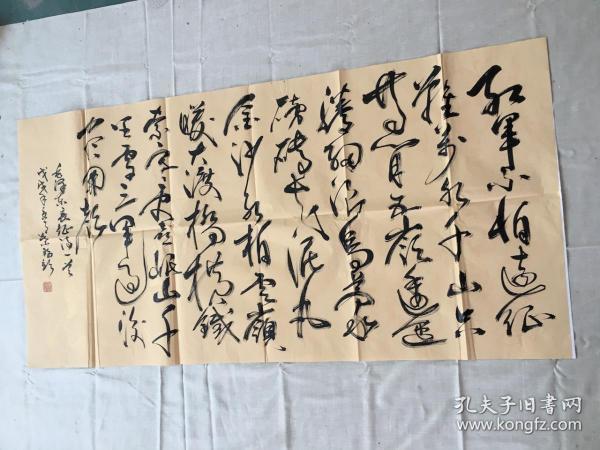 红軍不怕遠征
難万水千山只
等闲五嶺逶迤
腾细浪烏蒙
磅礴走泥丸
金沙水拍雲
暖大渡橋横鐵
索寒更喜岷山千
里雪三軍过後
尽開颜
毛泽东長征诗一首
戊戌年
孔夫子旧书网
www.kongfz.com